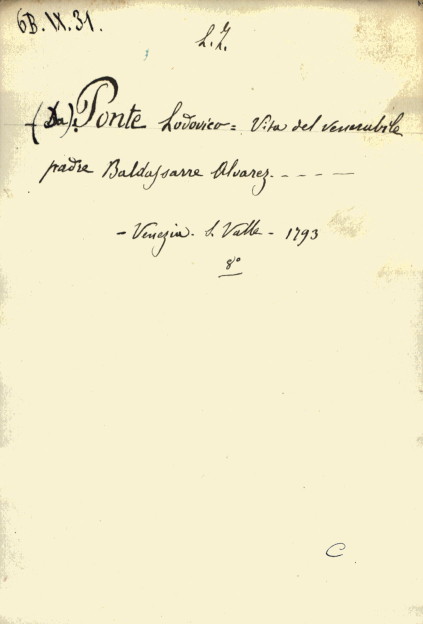 6B.IX.31.
L. Z.
(Da). Ponte Lodovico = Vita del venerabile
padre Baldassarre Alvarez - - - - -
- Venezia - S. Valle - 1793
8°
C